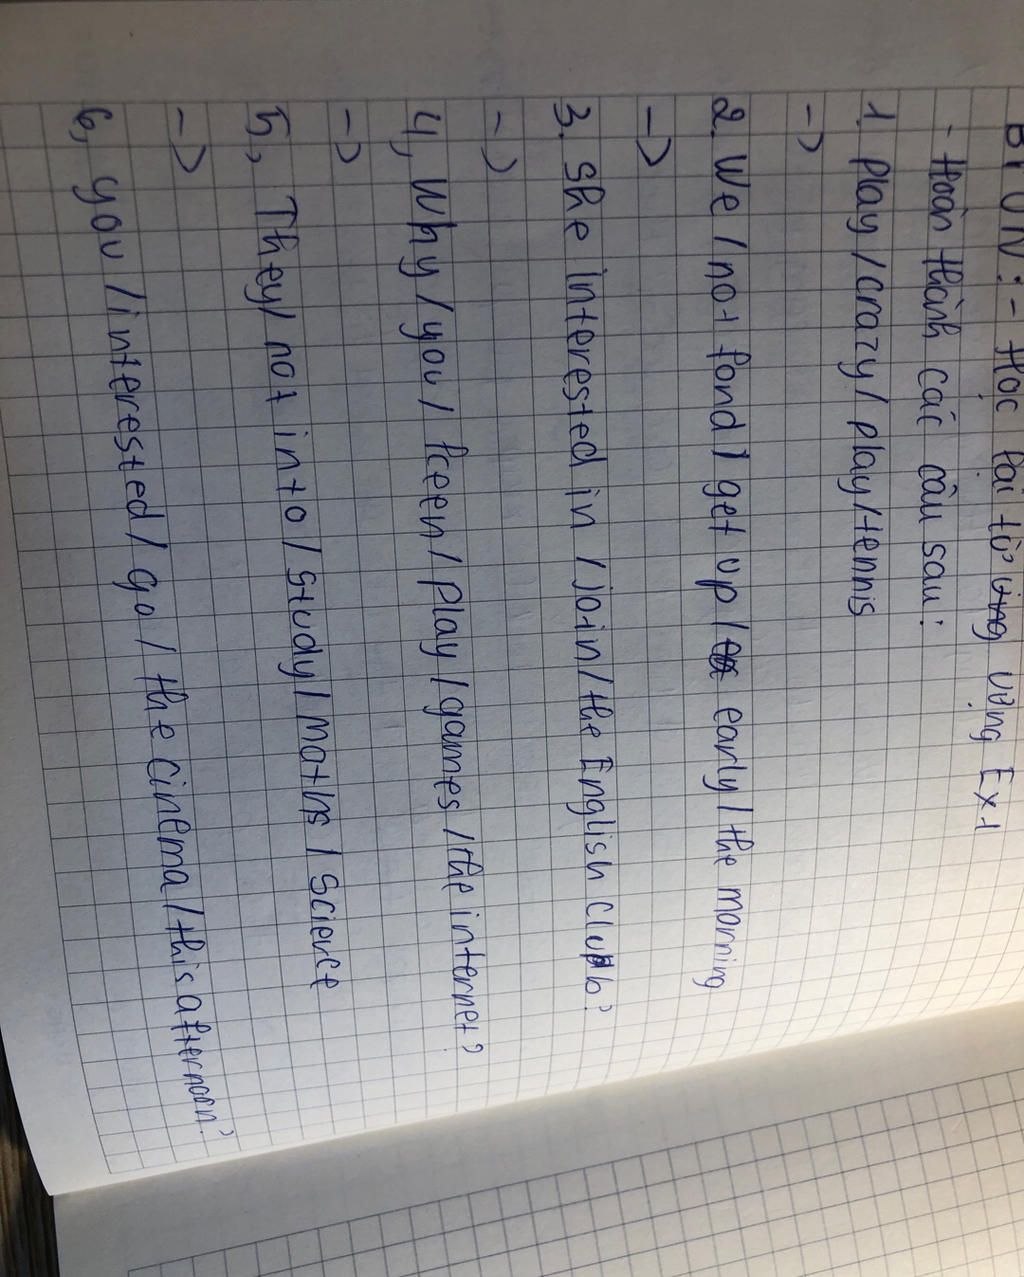 BTVN: - Học lại từ vựng Ex1
- Hoàn thành các câu sau:
1. Play / crazy / play / tennis
->
2. We / not fond / get up / early / the morning
->
3. She interested in / join / the English club?
->
4, Why / you / keen / play / games / the internet?
->
5, They / not into / study / maths / Science
->
6, you / interested / go / the cinema / this afternoon?